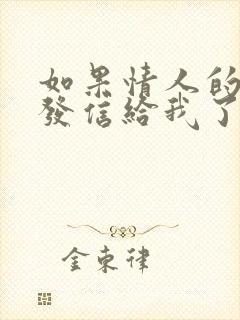 如果情人的
發信給我了
金束律